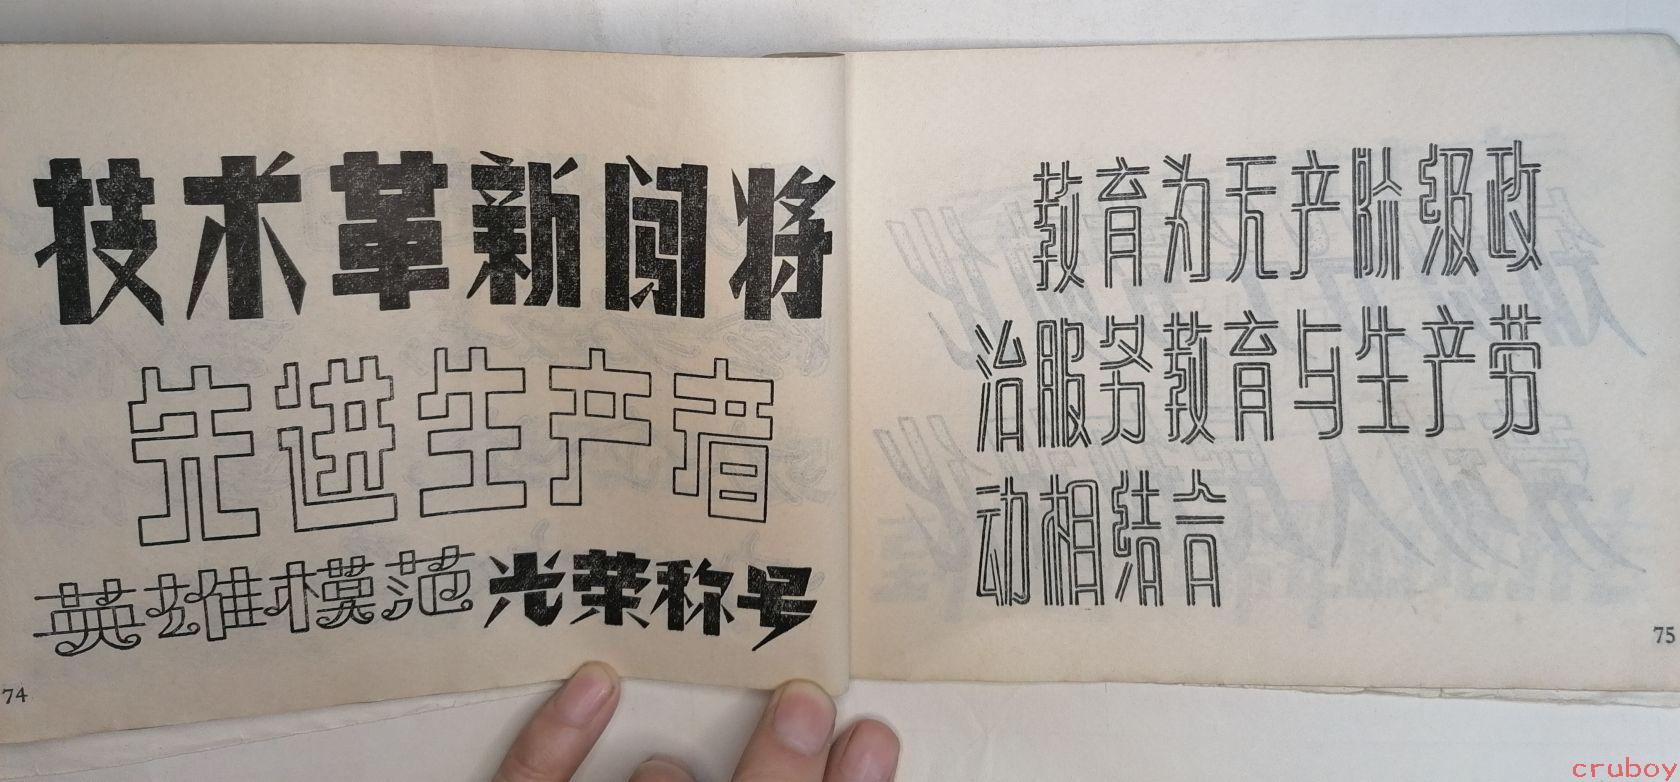 技术革新闯将
先进生产者
英雄模范光荣称号
74
教育为无产阶级政
治服务教育与生产劳
动相结合
75
cruboy